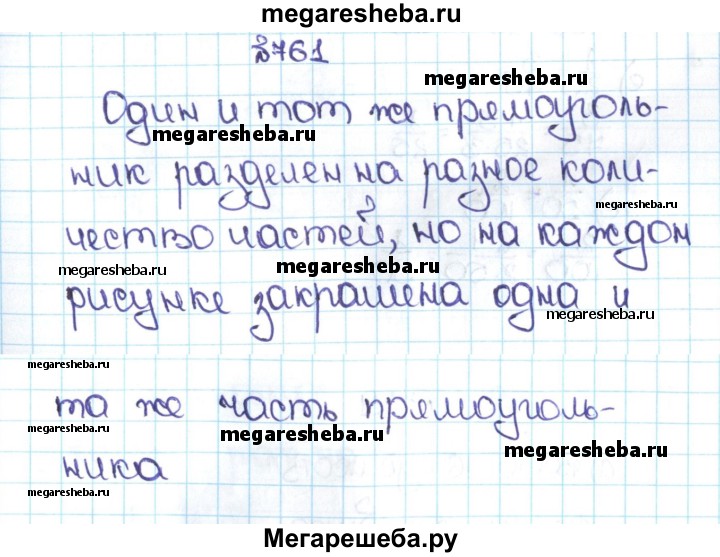 megaresheba.ru
№761
megaresheba.ru
Один и тот же прямоуголь-
megaresheba.ru
ник разделен на разное коли-
megaresheba.ru
чество частей, но на каждом
megaresheba.ru
megaresheba.ru
рисунке закрашена одна и
megaresheba.ru
megaresheba.ru
та же часть прямоуголь-
megaresheba.ru
megaresheba.ru
ника
megaresheba.ru
megaresheba.ru
Мегарешеба.ру